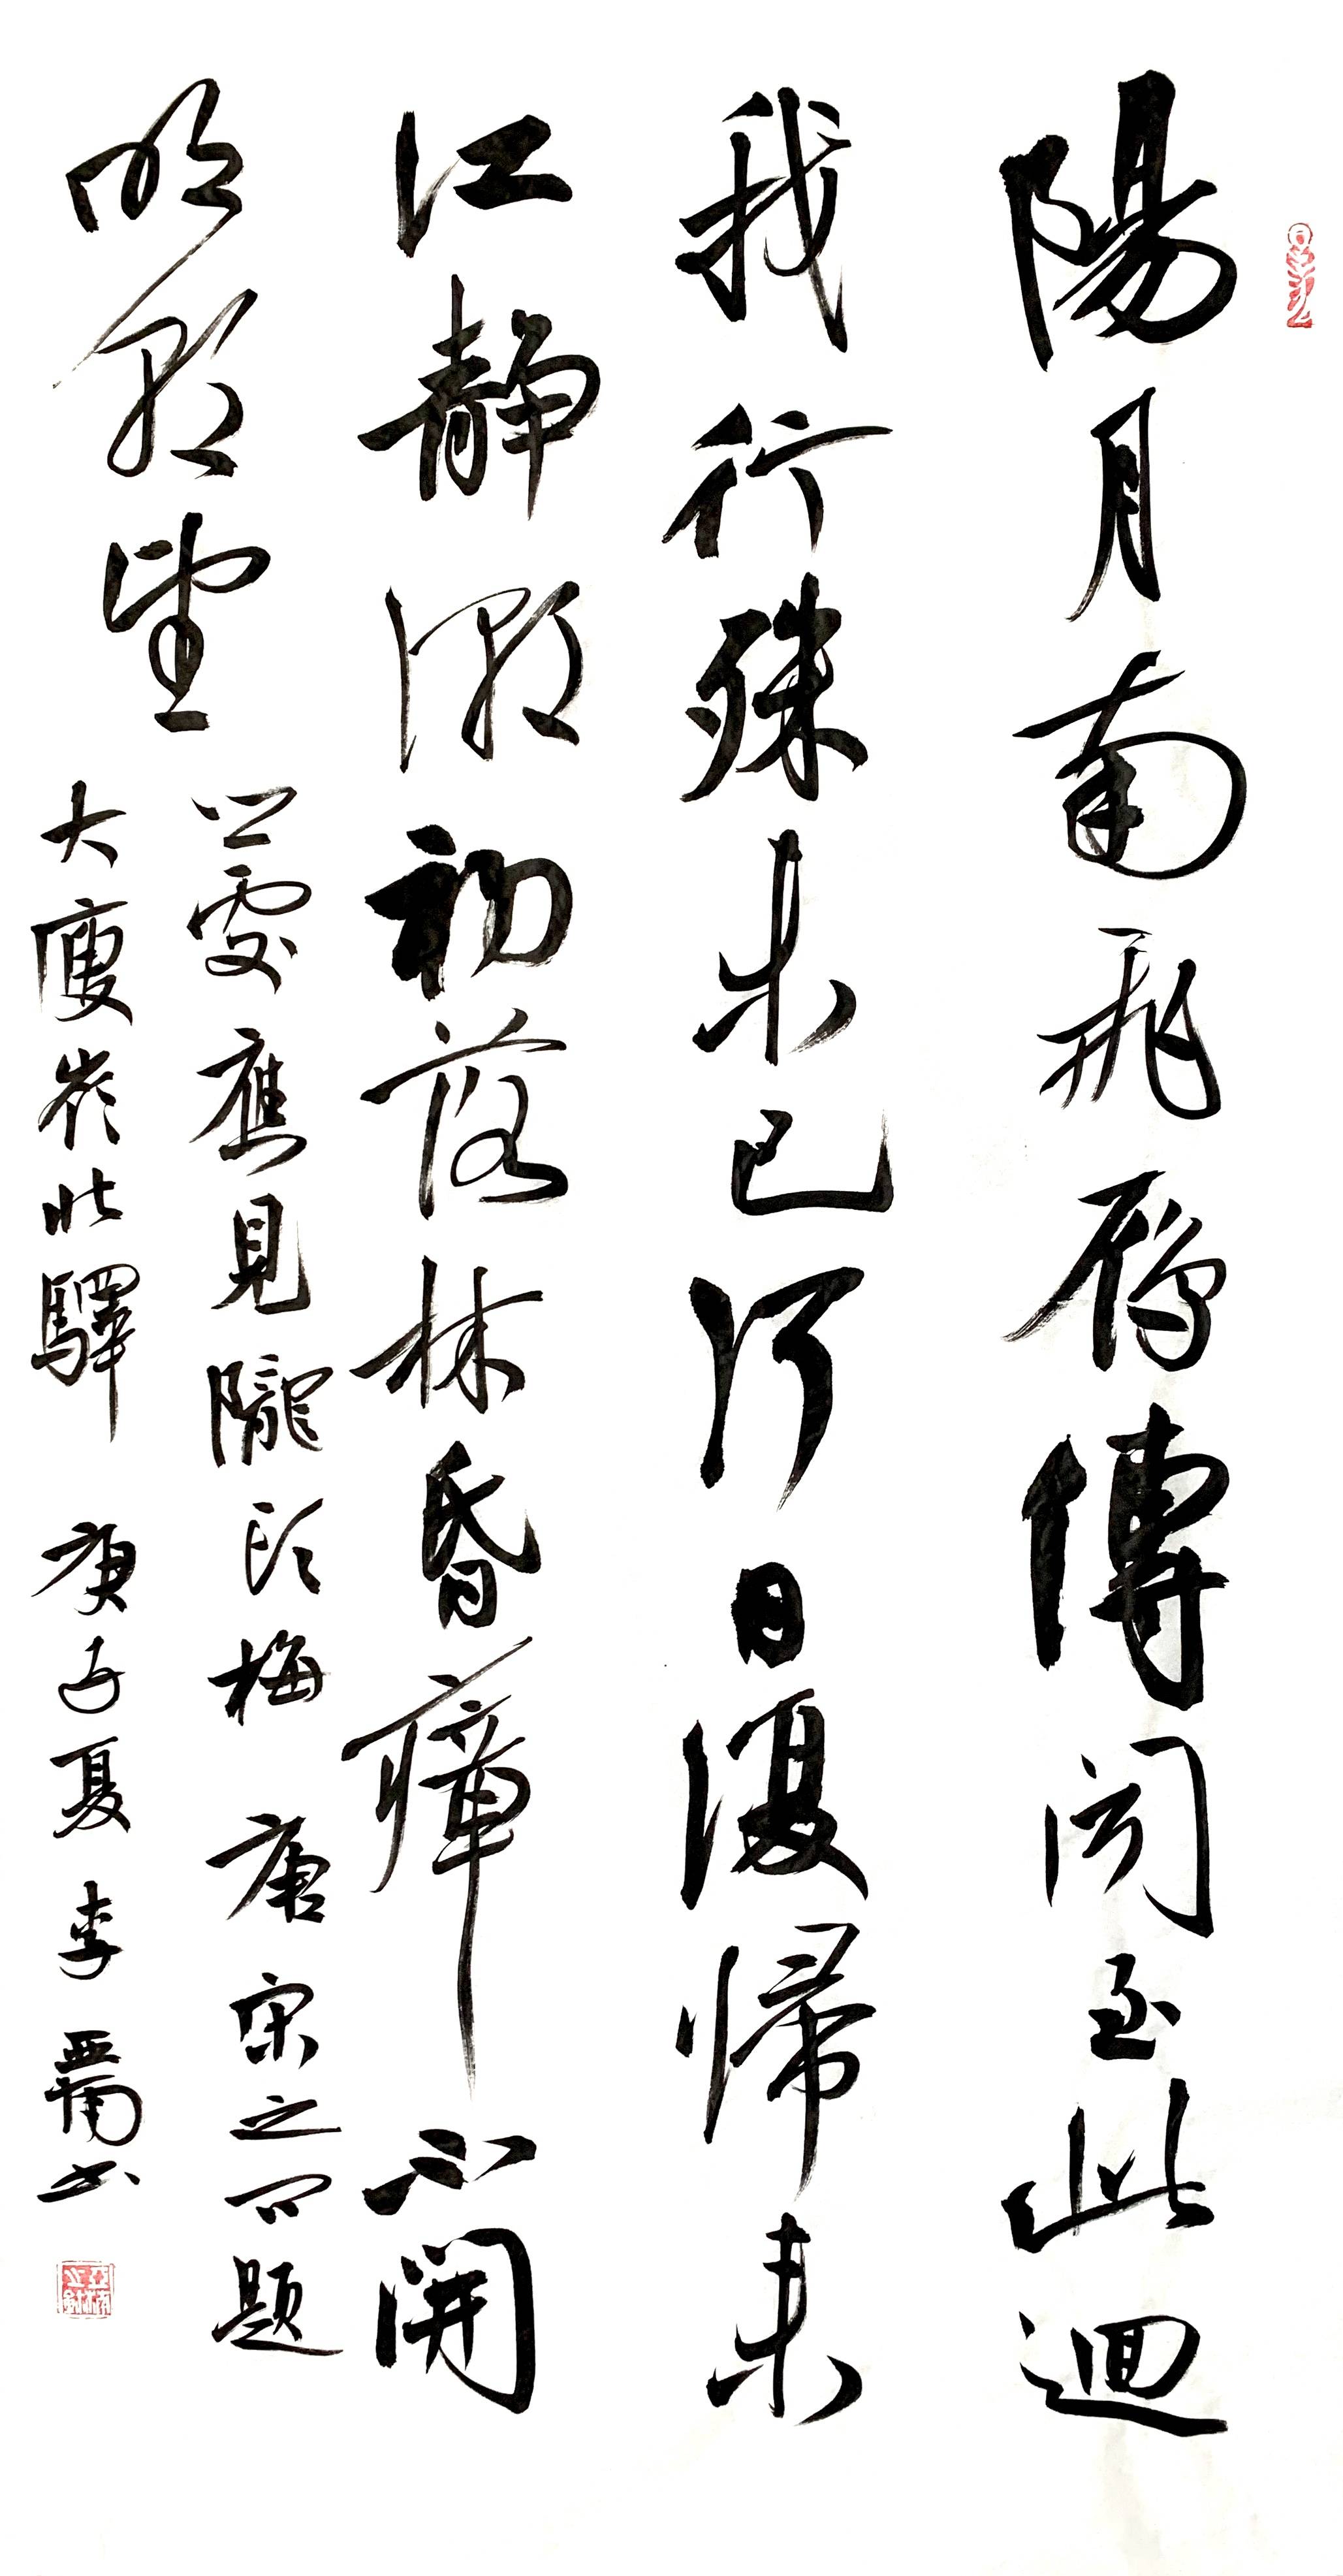 陽月南飛鴈傳聞至此迴
我行殊未已何日復歸來
江靜潮初落林昏瘴不開
明朝望
鄉處應見隴頭梅 唐 宋之問題
大庾嶺北驛 庚子夏 李亞南書